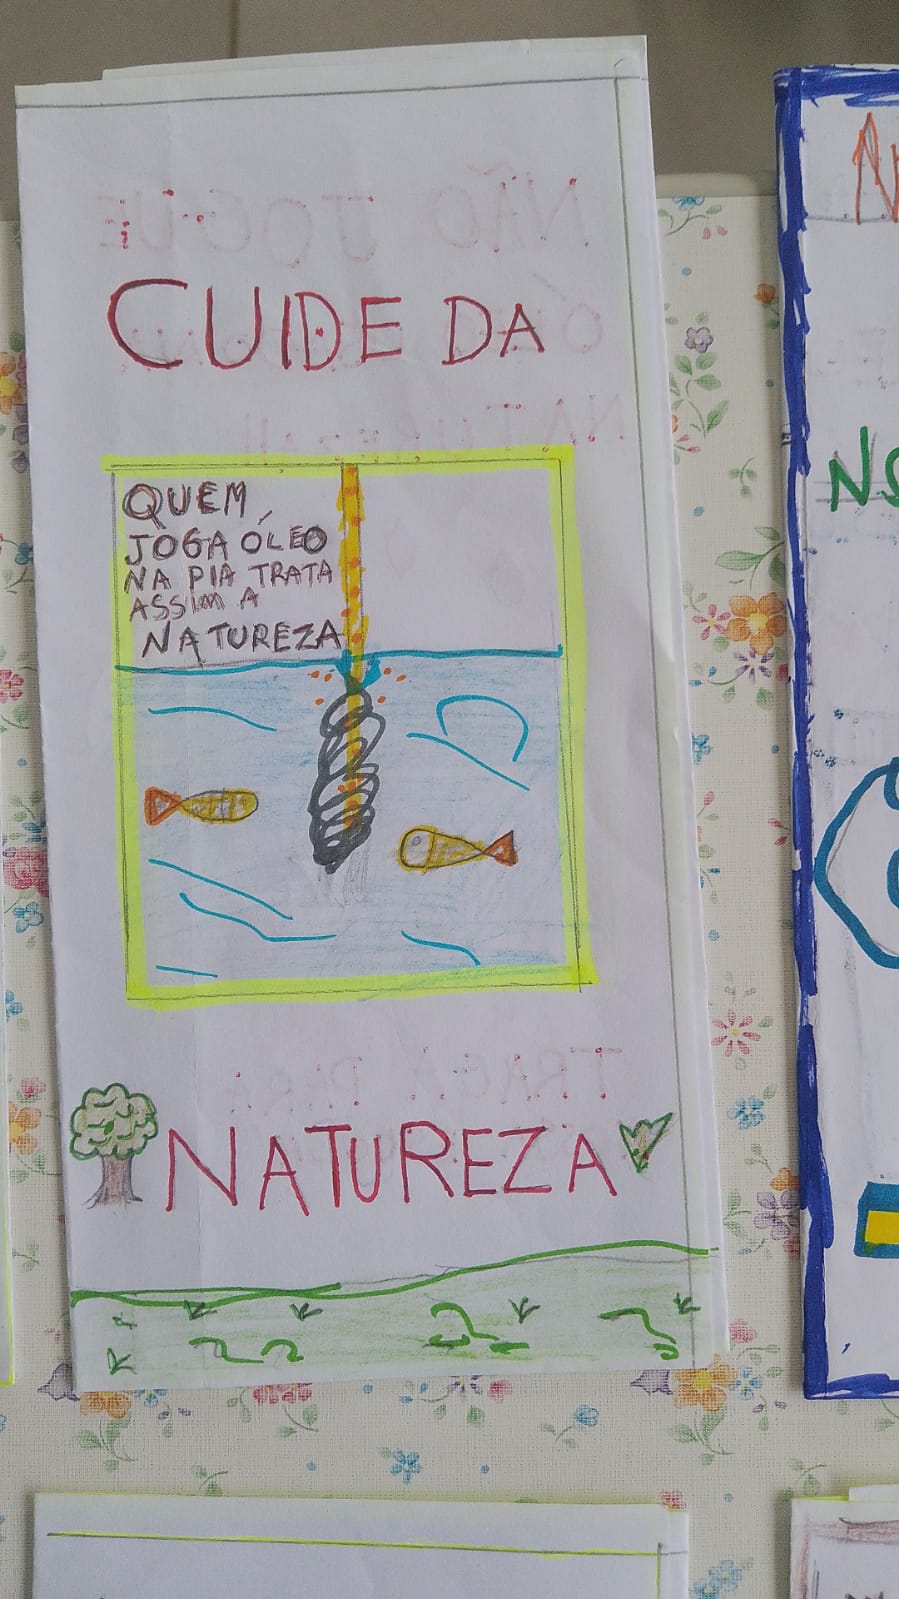 CUIDE DA
QUEM
JOGA ÓLEO
NA PIA TRATA
ASSIM A
NATUREZA
NATUREZA
NÃO JOGUE
NATUREZA!!
TRAGA PARA